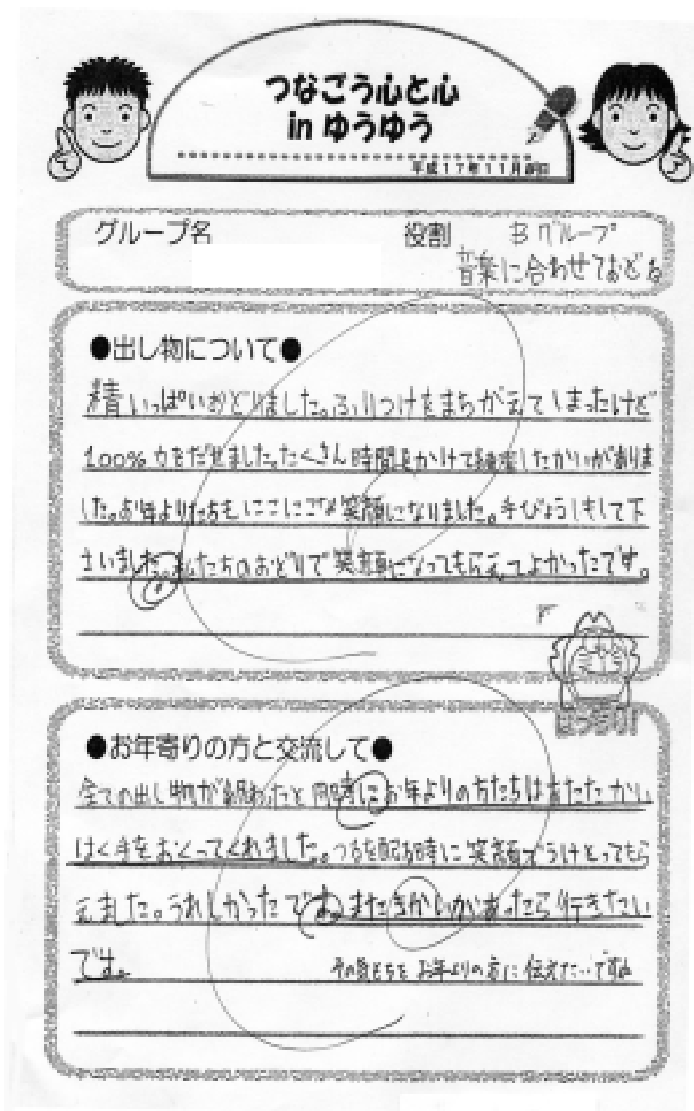 つなごう心と心
in ゆうゆう
平成17年11月
グループ名
役割 Bグループ
音楽に合わせておどる
●出し物について●
精いっぱいおどりました。ふりつけをまちがえてしまったけど
100%力をだせました。たくさん時間をかけて練習したかいがありま
した。お年よりたちもにこにこな笑顔になりました。手びょうしもして下
さいました。わたしたちのおどりで笑顔になってもらえてよかったです。
ばっちり!
●お年寄りの方と交流して●
全ての出し物が終わったと同時にお年よりの方たちはあたたかい
はく手をおくってくれました。つるを配る時に笑顔でうけとってもら
えました。うれしかったです。またきかいがあったら行きたい
です。
その気もちを お年よりの方に伝えたいですね